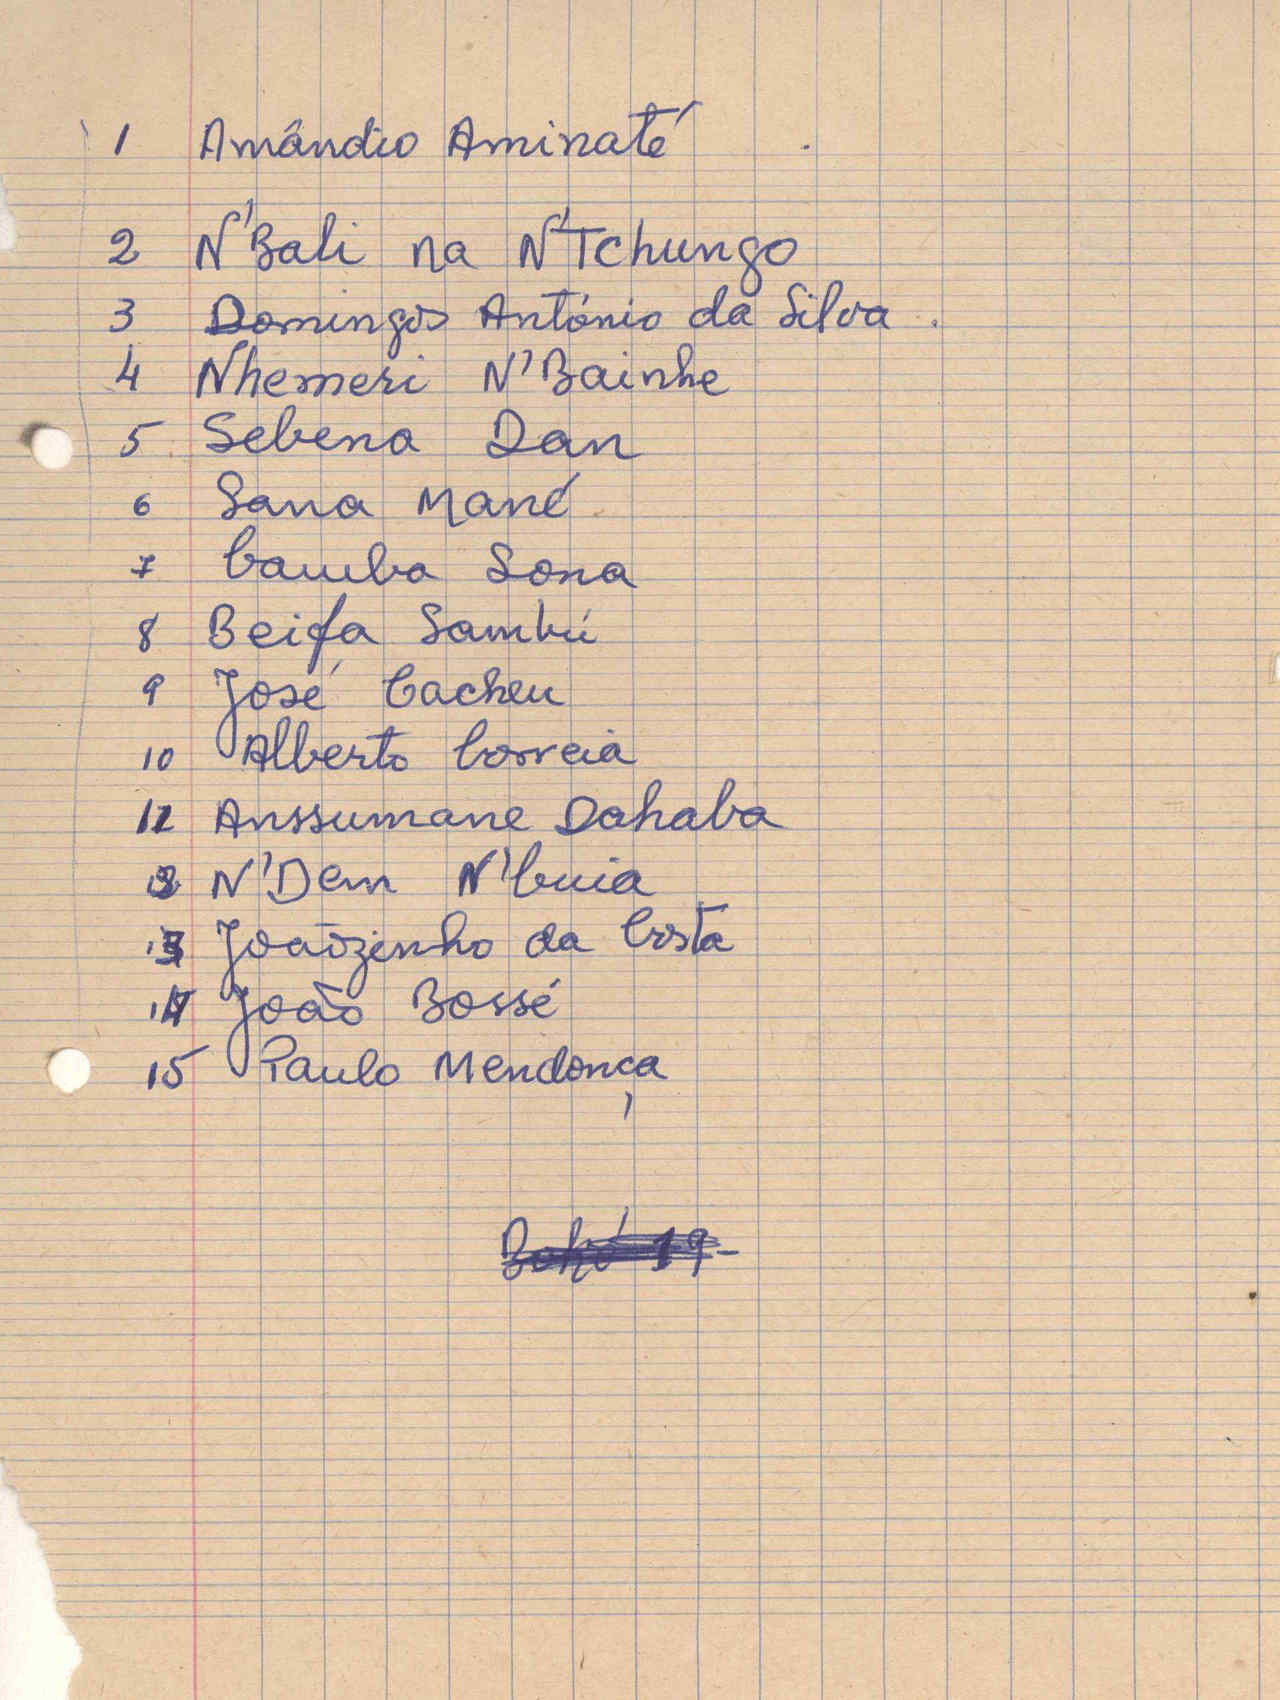 1 Amândio Aminaté
2 N'Bali na N'Tchungo
3 Domingos António da Silva.
4 Nhemeri N'Bainhe
5 Sebena Dan
6 Sana Mané
7 Camba Sona
8 Beifa Sambú
9 José Cacheu
10 Alberto Correia
12 Anssumane Dahaba
N'Dem N'Cuia
13 Joãozinho da Costa
14 João Bossé
15 Paulo Mendonça
Boké 19-